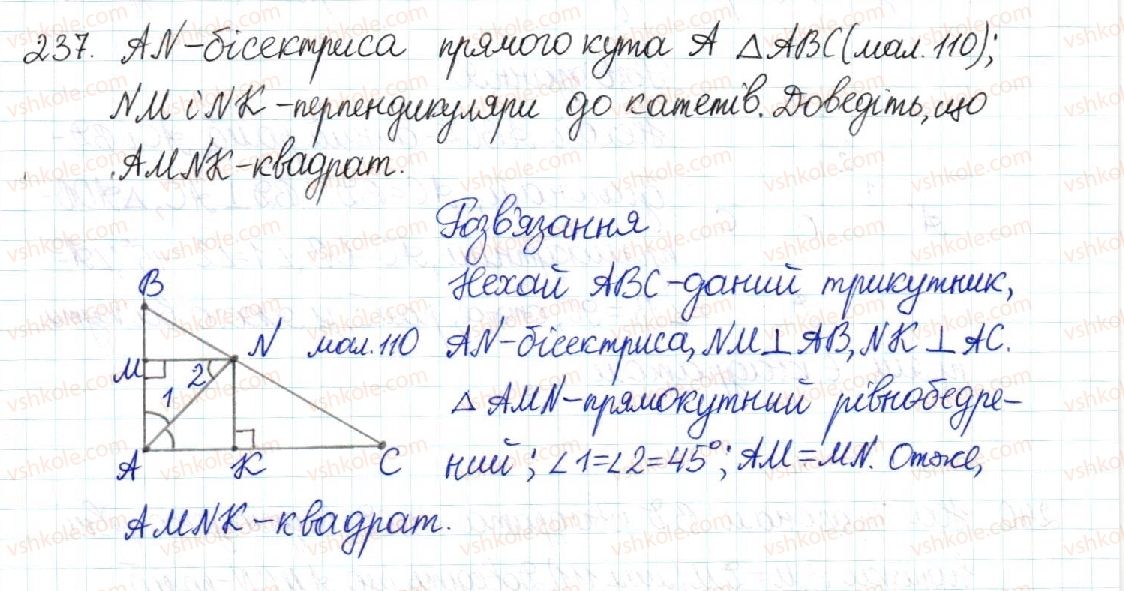 237. AN-бісектриса прямого кута A △ABC(мал.110);
NM і NK-перпендикуляри до катетів. Доведіть, що
AMNK-квадрат.
Розв'язання
Нехай ABC-даний трикутник,
AN-бісектриса, NM⊥AB, NK⊥AC.
△AMN-прямокутний рівнобедре-
ний; ∠1=∠2=45°; AM=MN. Отже,
AMNK-квадрат.
B
N мал.110
M 2
1
A K C